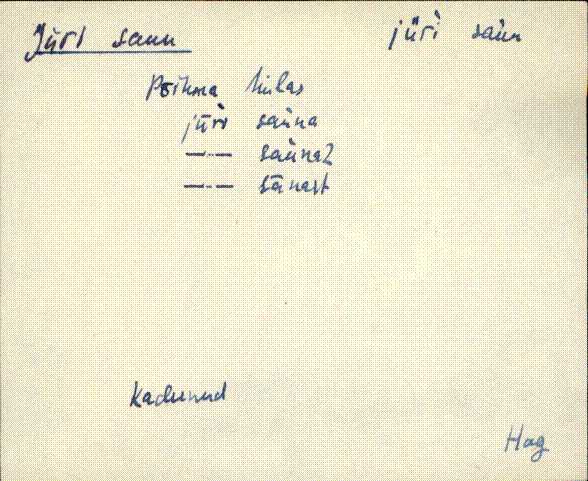 Jüri saun jüri sàun
Põhma külas
jüri sàuna
—"— sàunaᴢ
—"— sànast
Kadunud
Hag